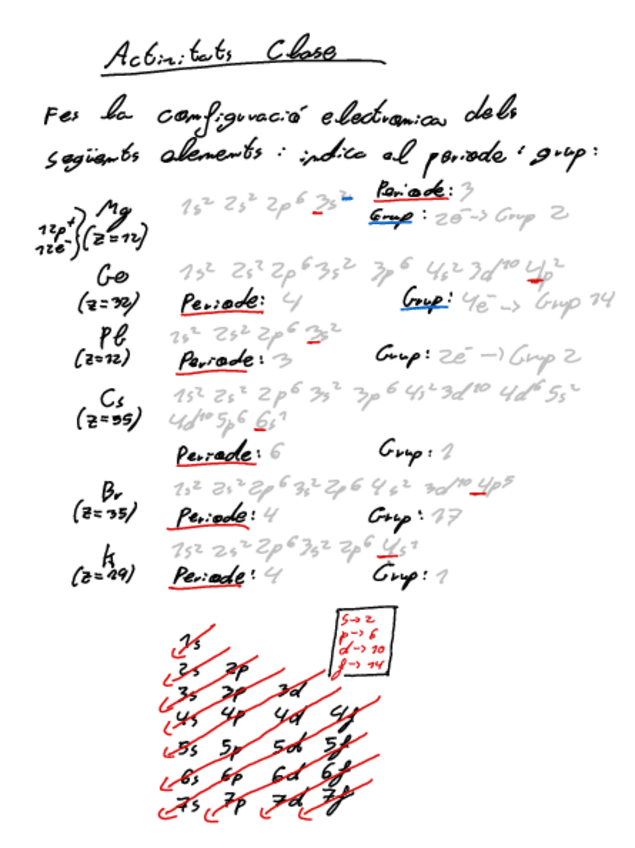 Activitats Clase
Fes la configuració electronica dels
següents elements i indica el periode i grup:
Mg 1s² 2s² 2p⁶ 3s² Periode: 3
12p⁺ 12e⁻ (Z=12) Grup: 2e⁻ -> Grup 2
Ge 1s² 2s² 2p⁶ 3s² 3p⁶ 4s² 3d¹⁰ 4p²
(Z=32) Periode: 4 Grup: 4e⁻ -> Grup 14
Pb 1s² 2s² 2p⁶ 3s²
(Z=12) Periode: 3 Grup: 2e⁻ -> Grup 2
Cs 1s² 2s² 2p⁶ 3s² 3p⁶ 4s² 3d¹⁰ 4d⁶ 5s²
(Z=55) 4d¹⁰ 5p⁶ 6s¹
Periode: 6 Grup: 1
Br 1s² 2s² 2p⁶ 3s² 2p⁶ 4s² 3d¹⁰ 4p⁵
(Z=35) Periode: 4 Grup: 17
K 1s² 2s² 2p⁶ 3s² 2p⁶ 4s¹
(Z=19) Periode: 4 Grup: 1
s -> 2
p -> 6
d -> 10
f -> 14
1s
2s 2p
3s 3p 3d
4s 4p 4d 4f
5s 5p 5d 5f
6s 6p 6d 6f
7s 7p 7d 7f